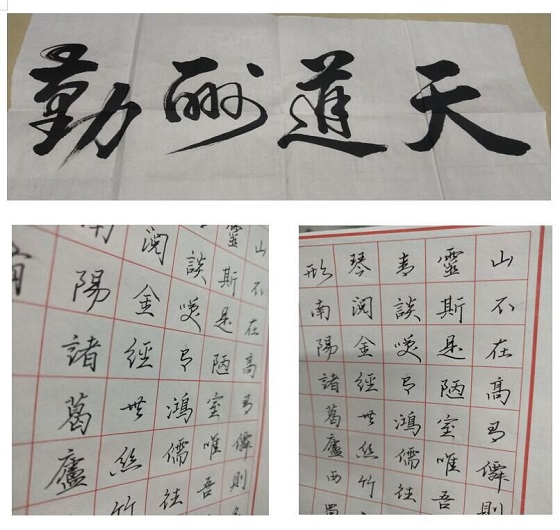 天道酬勤
山不在高有僊則
靈斯是陋室唯吾
談咲有鴻儒往
閱金經無絲竹
南陽諸葛廬
山不在高有僊則
靈斯是陋室唯吾
青談咲有鴻儒往
琴閱金經無絲竹
形南陽諸葛廬西蜀